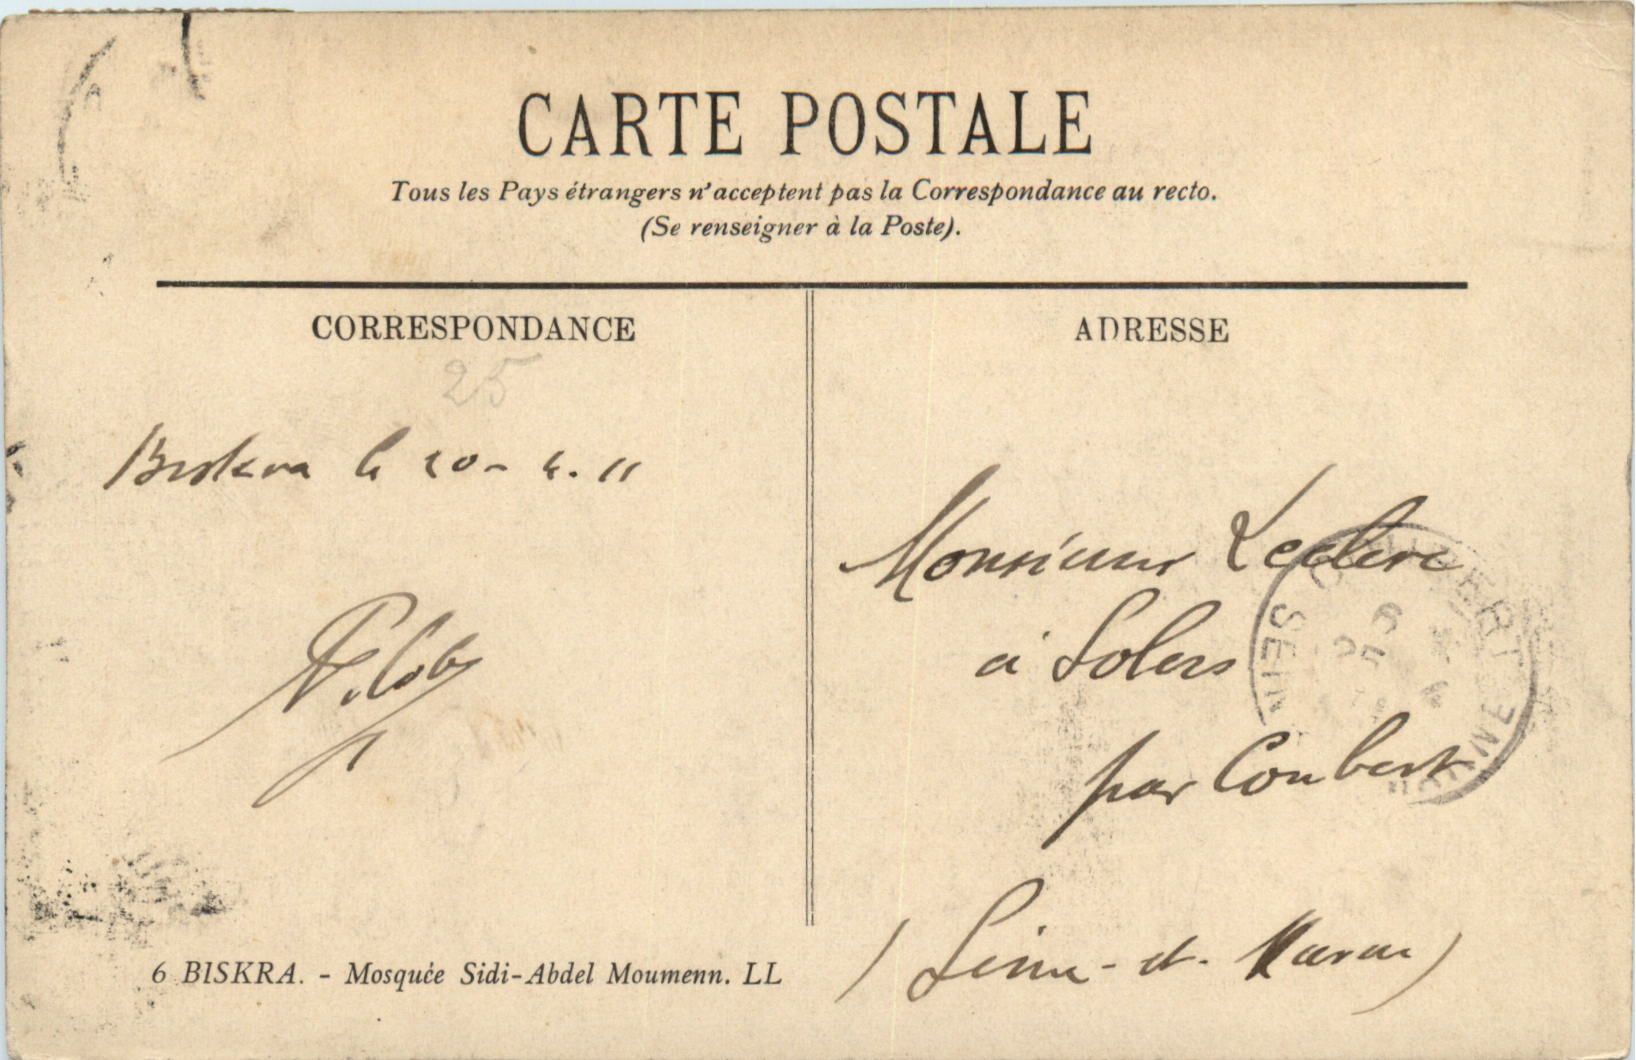 CARTE POSTALE
Tous les Pays étrangers n'acceptent pas la Correspondance au recto.
(Se renseigner à la Poste).
CORRESPONDANCE
25
Biskra le 20-4.11
6 BISKRA. - Mosquée Sidi-Abdel Moumenn. LL
ADRESSE
Monsieur Leclerc
à Solers
par Coubert
(Seine-et-Marne)
COUBERT
SEINE